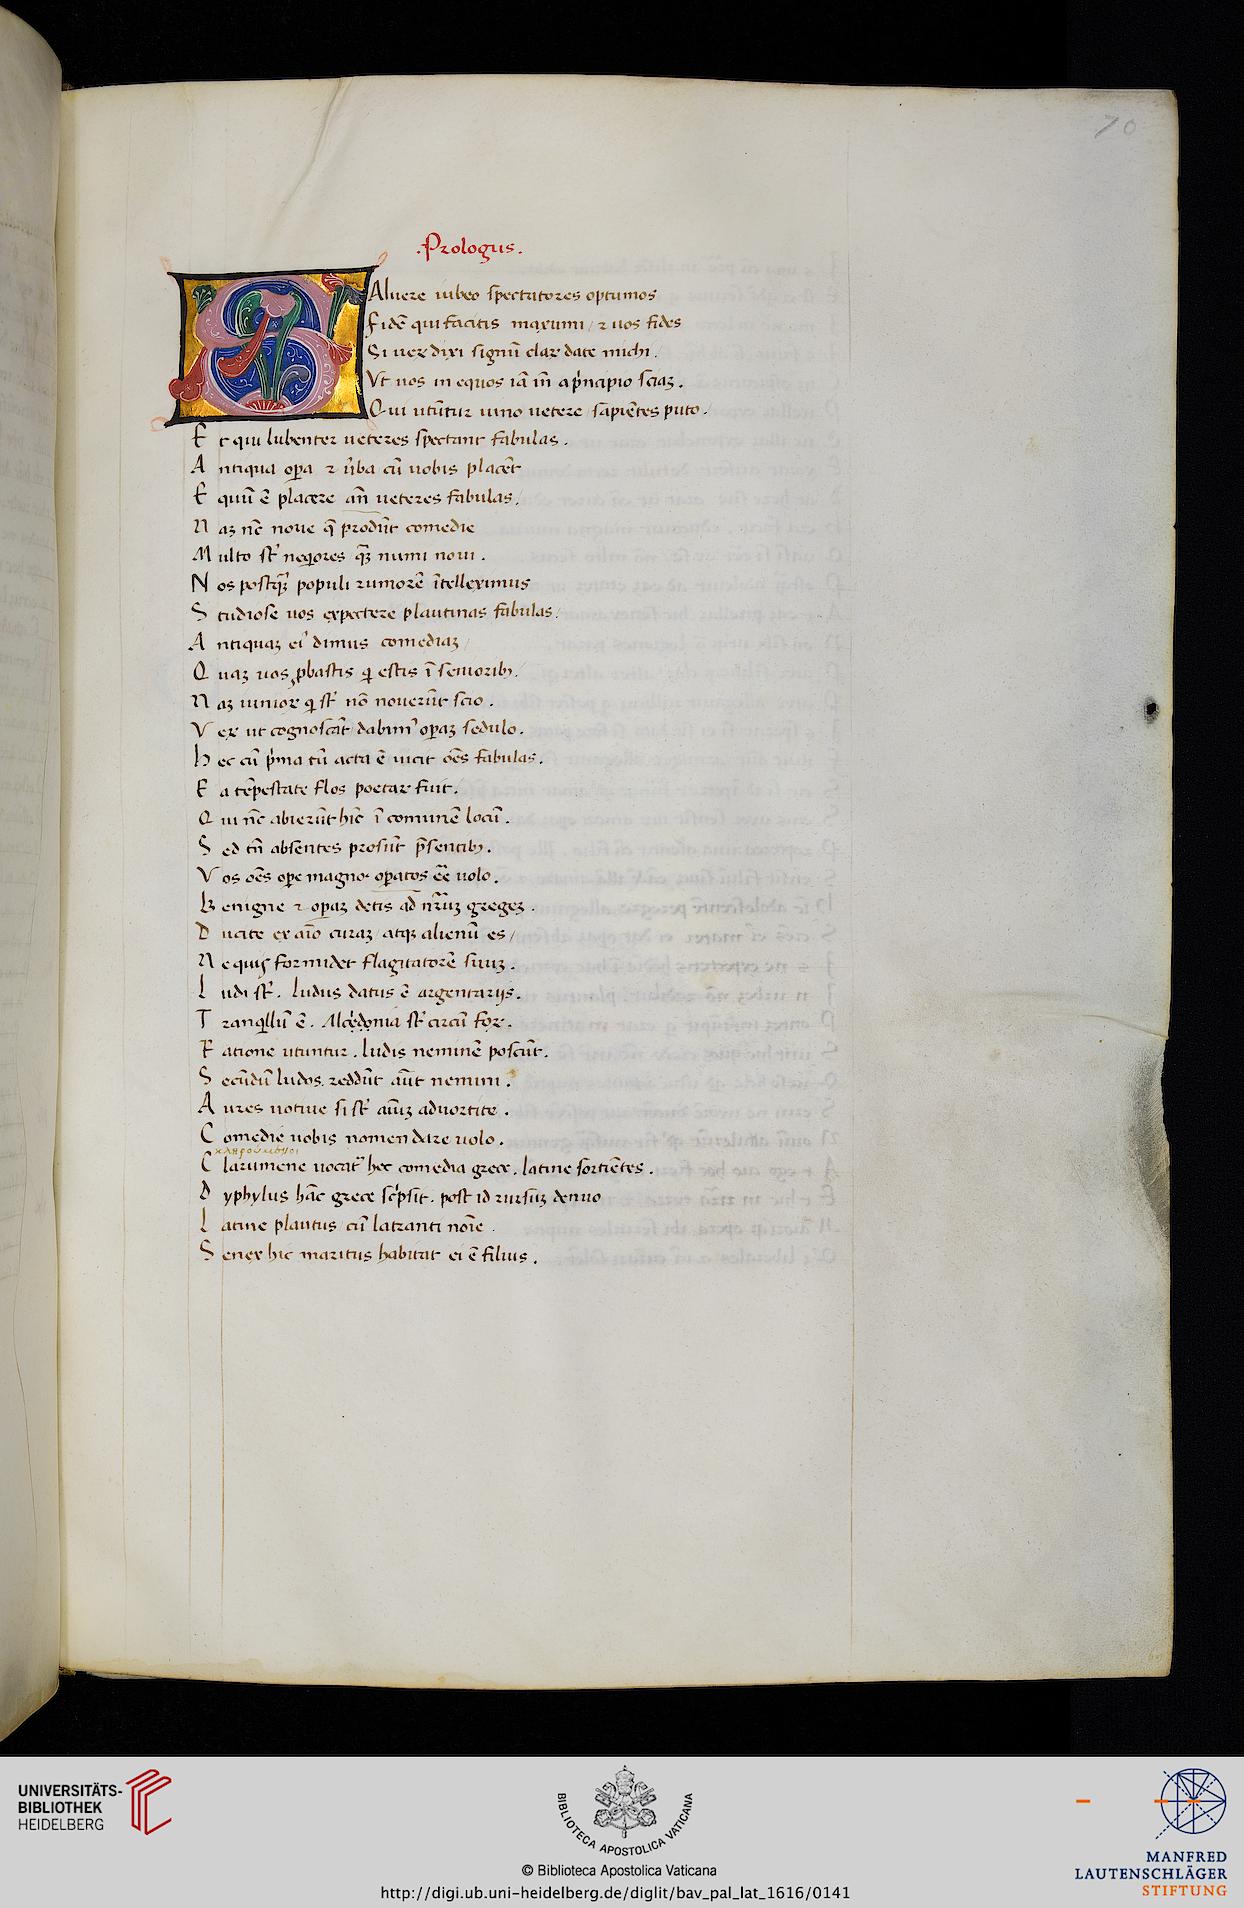 70
.Prologus.
SAluere iubeo spectatores optumos
Fidē qui facitis maxumi / ⁊ uos fides
Si uerꝝ dixi signū clarꝝ date michi .
Vt uos mi equos iā īn a p̃ncipio sciaꝫ .
Qui utūtur uino uetere sapiētes puto.
Et qui lubenter ueteres spectant fabulas .
Antiqua oꝑa ⁊ ūba cū uobis placēt
Equū ē placere an̄ ueteres fabulas /
Naꝫ nc̄ noue q̄ prodūt comedie
Multo st̄ neq̇ores q̄ꝫ numi noui .
Nos postq̄ꝫ populi rumorē ītelleximus
Studiose uos expectere plautinas fabulas /
Antiquaꝫ eiꝰ dimus comediaꝫ /
Quaꝫ uos ꝓbastis q̇ estis ī seniorib; /
Naꝫ iuniorꝝ q̇ st̄ nō nouerūt scio .
Verꝝ ut cognoscāt / dabimꝰ oꝑaꝫ sedulo .
Hec cū p̃ma tū acta ē uicit oēs fabulas .
Ea tēpestate flos poetarꝝ fuit .
Qui nc̄ abierūt hīc ī comunē locū .
Sed tn̄ absentes prosūt p̄sentib; .
Vos oēs oꝑe magno . oꝑatos eē uolo .
Benigne ⁊ oꝑaꝫ detis ad nr̄aꝫ gregeꝫ .
Ducite ex aīo curaꝫ / atqꝫ alienū es /
Nequis formidet flagitatorē suuꝫ .
Ludi st̄ . ludus datus ē argentarijs .
Tranq̇llū ē . Alcedonia st̄ circū forꝝ .
Ratione utuntur . ludis neminē poscūt .
Secūdū ludos . reddūt aūt nemini .
Aures uotiue si st̄ aīuꝫ aduortite .
Comedie uobis nomen dare uolo .
κληρούμενοι
Clarumene uocatᷣ hec comedia grece . latine sortiētes .
Dyphylus hāc grece sc̃psit . post id rursuꝫ denuo
Latine plautus / cū latranti noīe .
Senex hic maritus habitat ei ē filius .
UNIVERSITÄTS-
BIBLIOTHEK
HEIDELBERG
BIBLIOTECA APOSTOLICA VATICANA
© Biblioteca Apostolica Vaticana
http://digi.ub.uni-heidelberg.de/diglit/bav_pal_lat_1616/0141
MANFRED
LAUTENSCHLÄGER
STIFTUNG